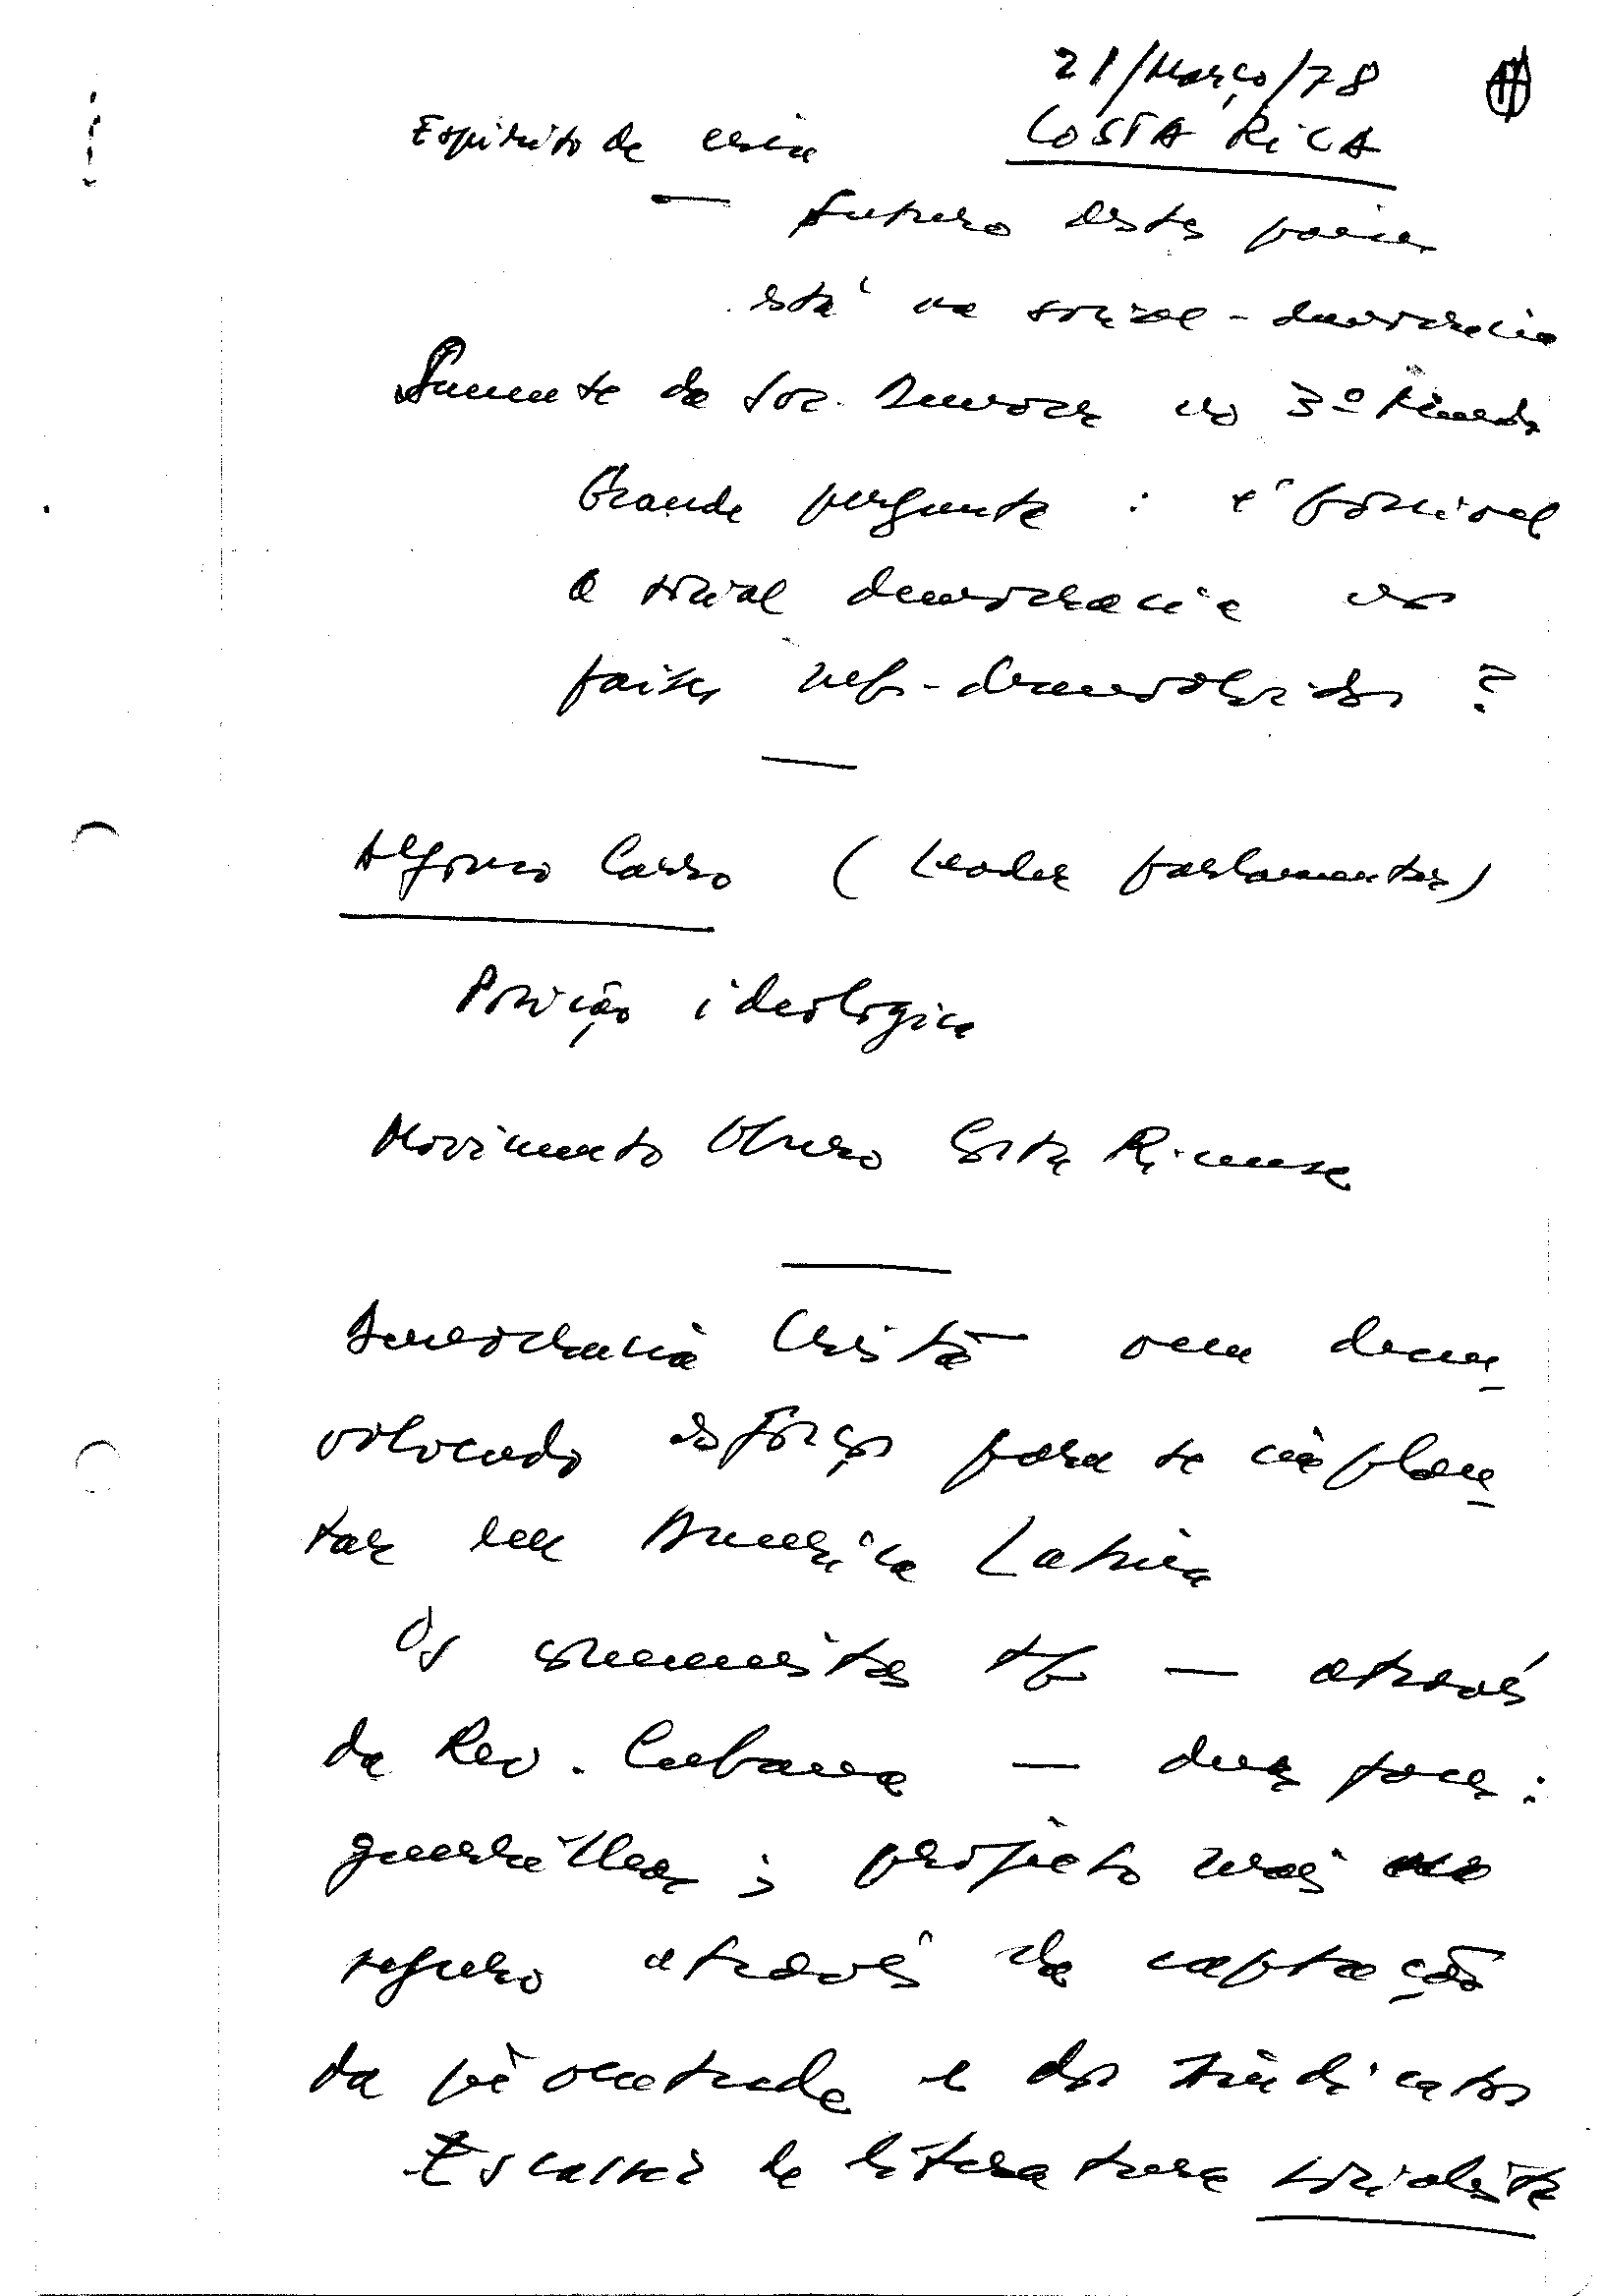 21/Março/78
Espirito de crise COSTA RICA
— futuro destes paises
está na social-democracia
Semente da Soc. Democr. no 3º Mundo
Grande pergunta : é possivel
a social democracia nos
paises sub-desenvolvidos ?
Alfonso Carro (Leader parlamentar)
Posição ideologica
Movimento Obrero Costa Ricense
Democracia Cristã vem desen
volvendo esforços para se implan
tar em America Latina
Os comunistas tb — através
da Rev. Cubana — duas fases :
guerrilhas ; projeto mais
seguro através da captação
da juventude e dos sindicatos
Escassez de literatura socialista